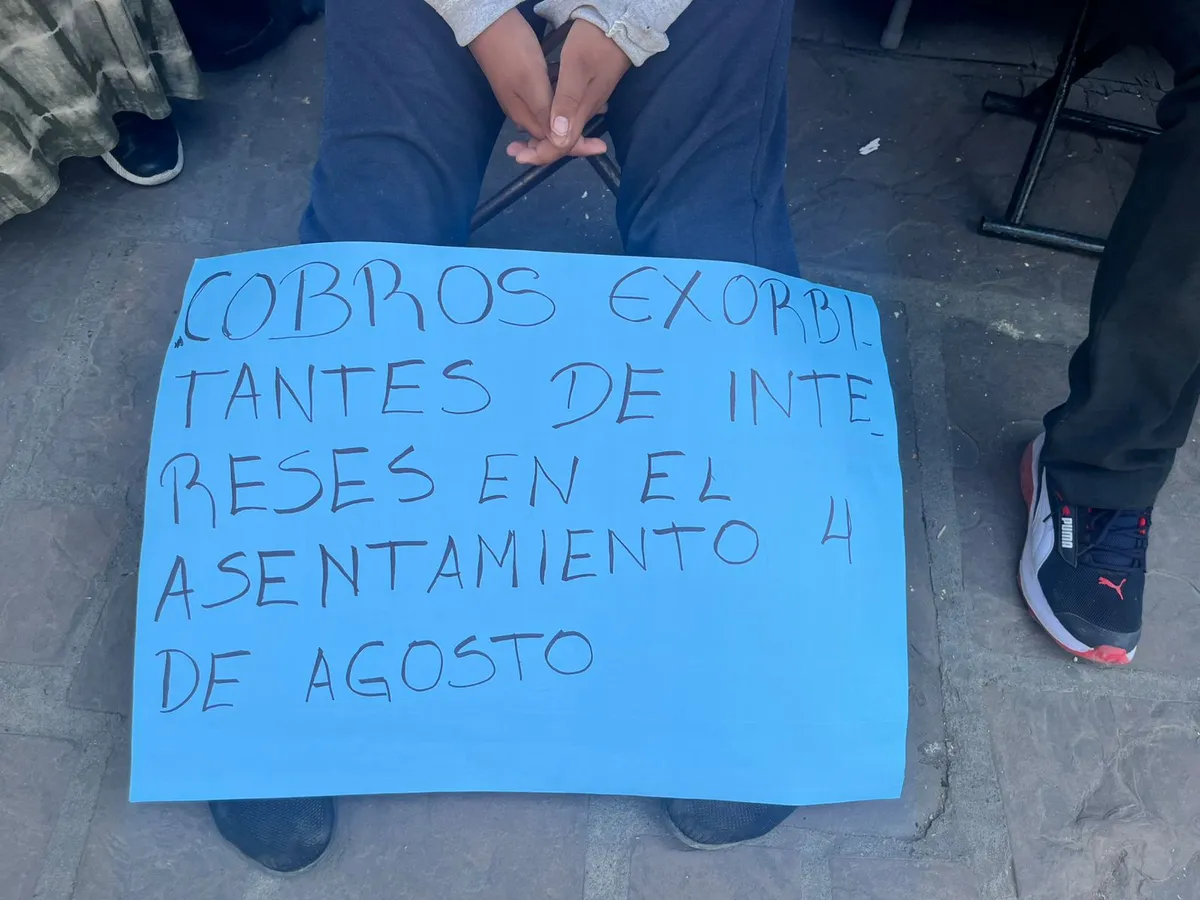 COBROS EXORBI-
TANTES DE INTE-
RESES EN EL
ASENTAMIENTO 4
DE AGOSTO
PUMA